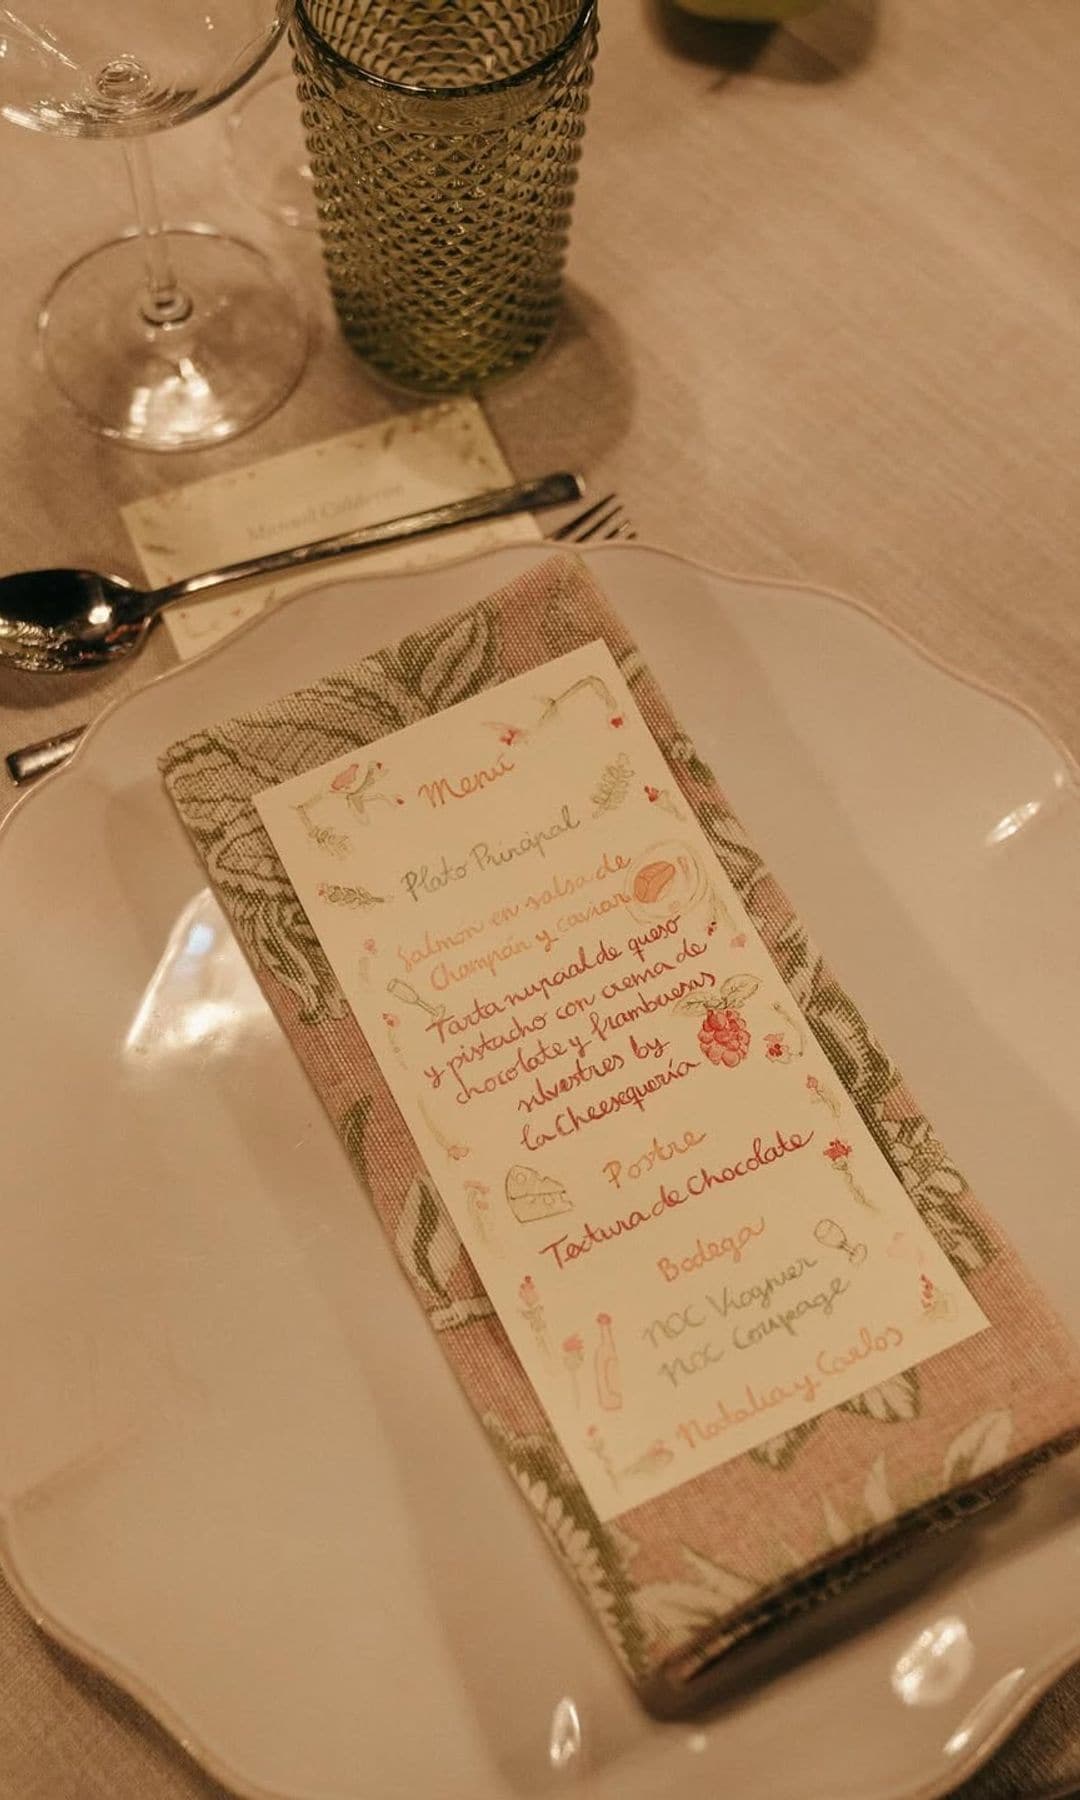 Manuel Calderon
Menú
Plato Principal
Salmón en salsa de
Champán y caviar
Tarta nupcial de queso
y pistacho con crema de
chocolate y frambuesas
silvestres by
la Cheesequería
Postre
Textura de Chocolate
Bodega
NOC Viognier
NOC Coupage
Natalia y Carlos